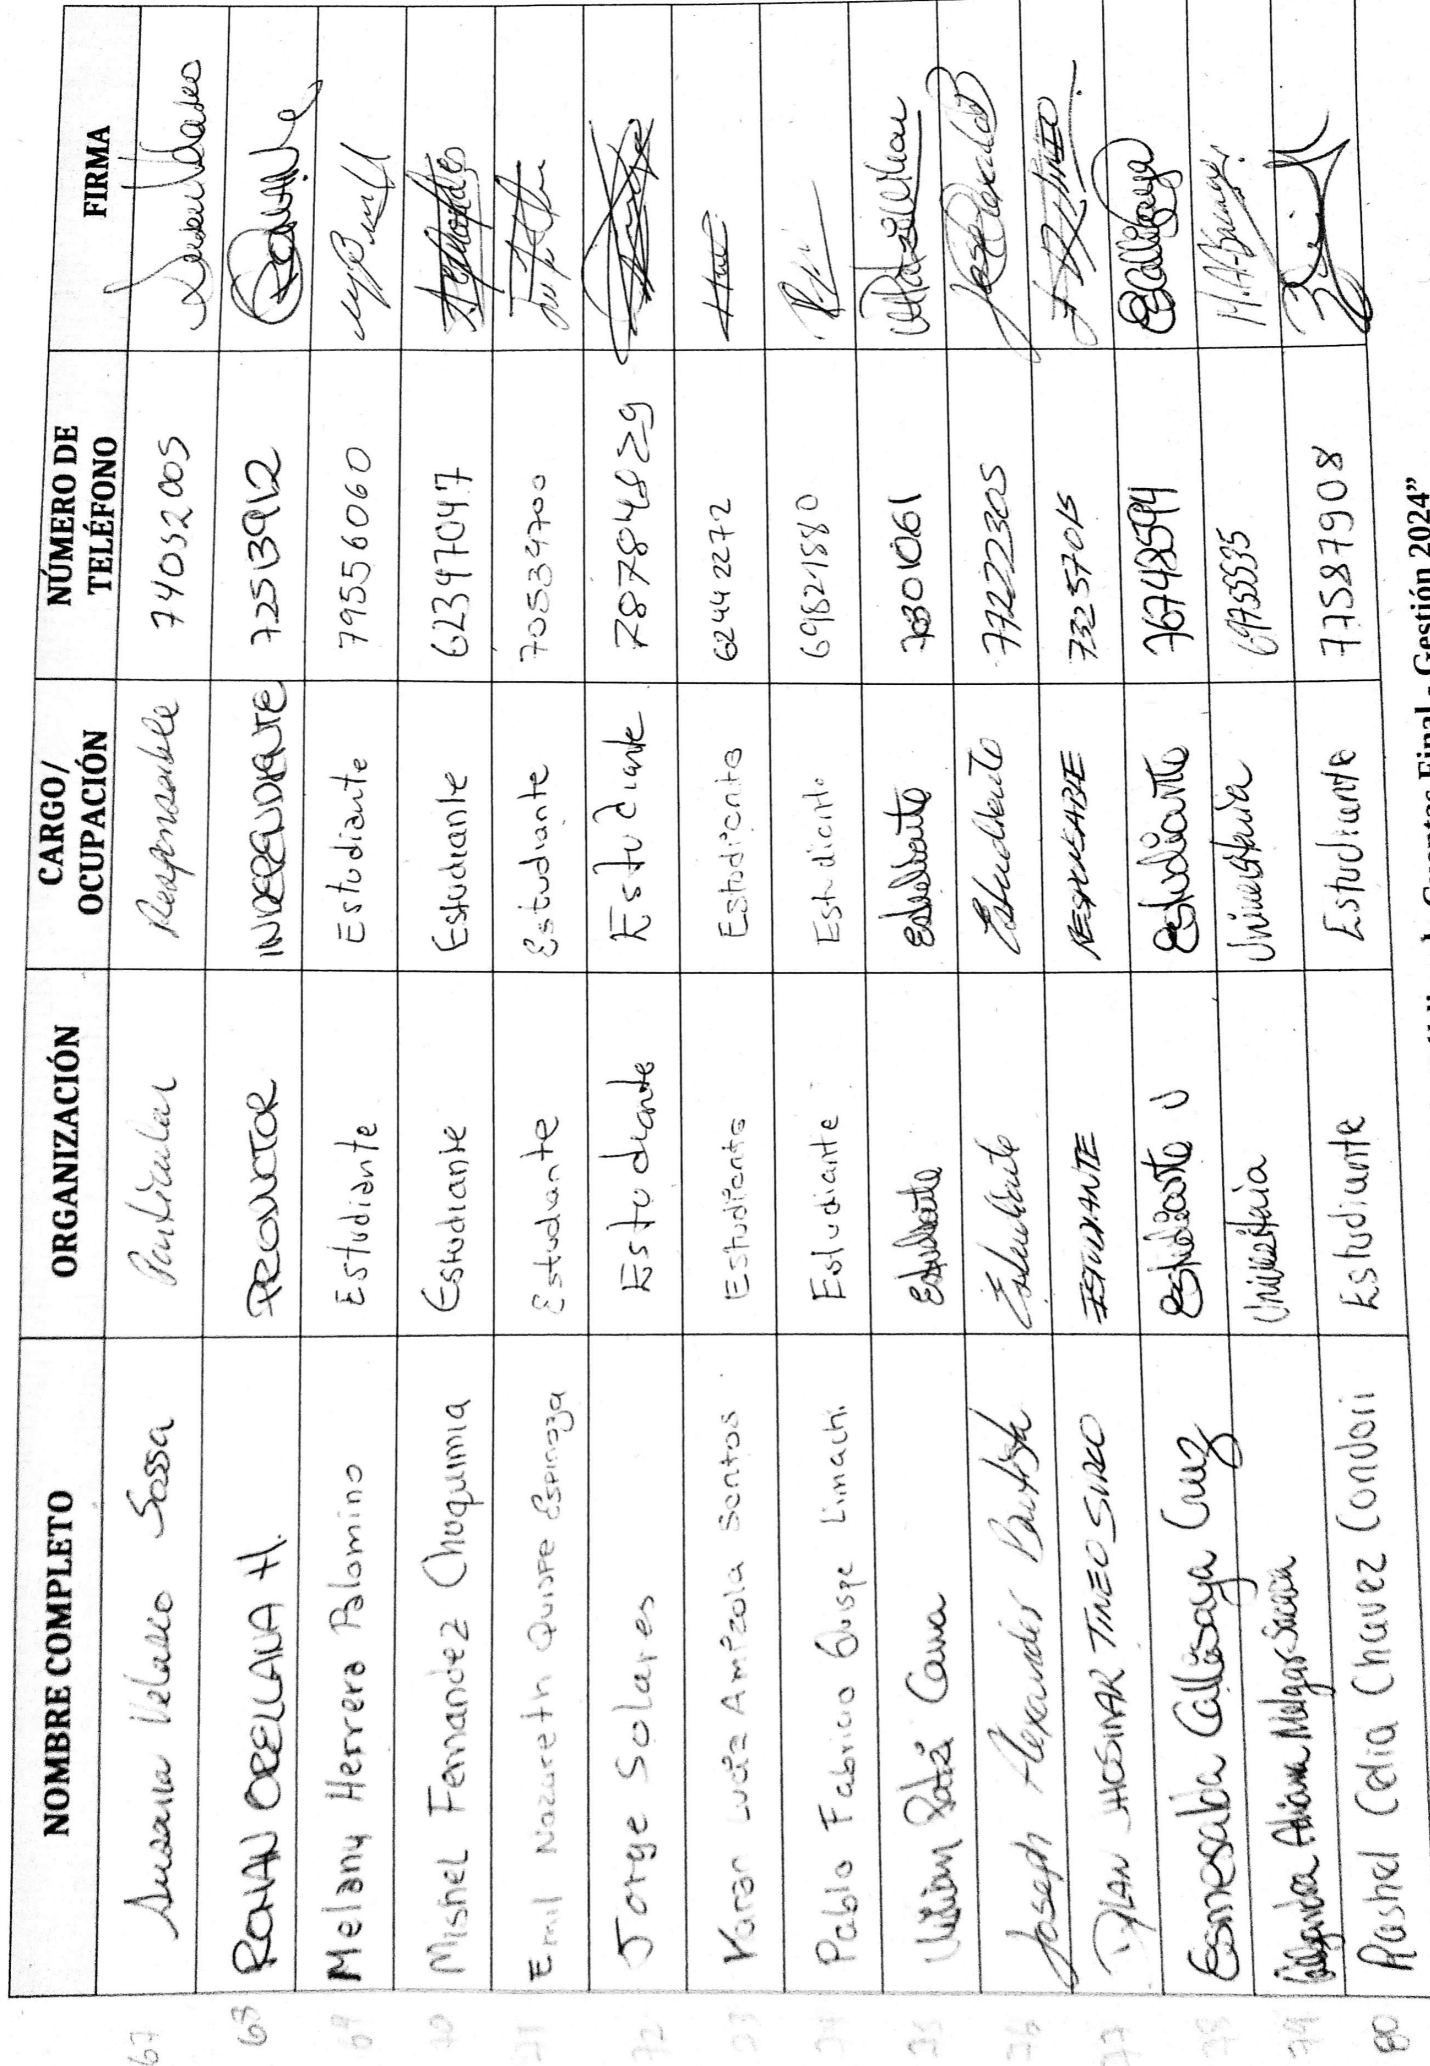 NOMBRE COMPLETO ORGANIZACIÓN CARGO/ OCUPACIÓN NÚMERO DE TELÉFONO FIRMA
67 Susana Velasco Sossa Particular Responsable 74052005
68 ROMAN ORELLANA H. PRODUCTOR INDEPENDIENTE 72513912
69 Melany Herrera Palomino Estudiante Estudiante 79556060
70 Mishel Fernandez Chuquimia Estudiante Estudiante 62397047
71 Emil Nazareth Quispe Espinoza Estudiante Estudiante 70534700
72 Jorge Solares Estudiante Estudiante 78784829
73 Karan Luiz Ampzola Santos Estudiante Estudiante 62442272
74 Pablo Fabricio Quispe Limachi Estudiante Estudiante 69821880
75 Cama Estudiante Estudiante
76 Joseph Alexander Bautista Estudiante Estudiante 77222305
77 DYLAN JHOSMAR TINEO SIRCO ESTUDIANTE RESPONSABLE 73257015
78 Esmeralda Callisaya Cruz Estudiante U Estudiante 76748594
79 Adriana Melgar Universitaria Universitaria
80 Rashel Celia Chavez Condori Estudiante Estudiante 77587908
Final - Gestión 2024”